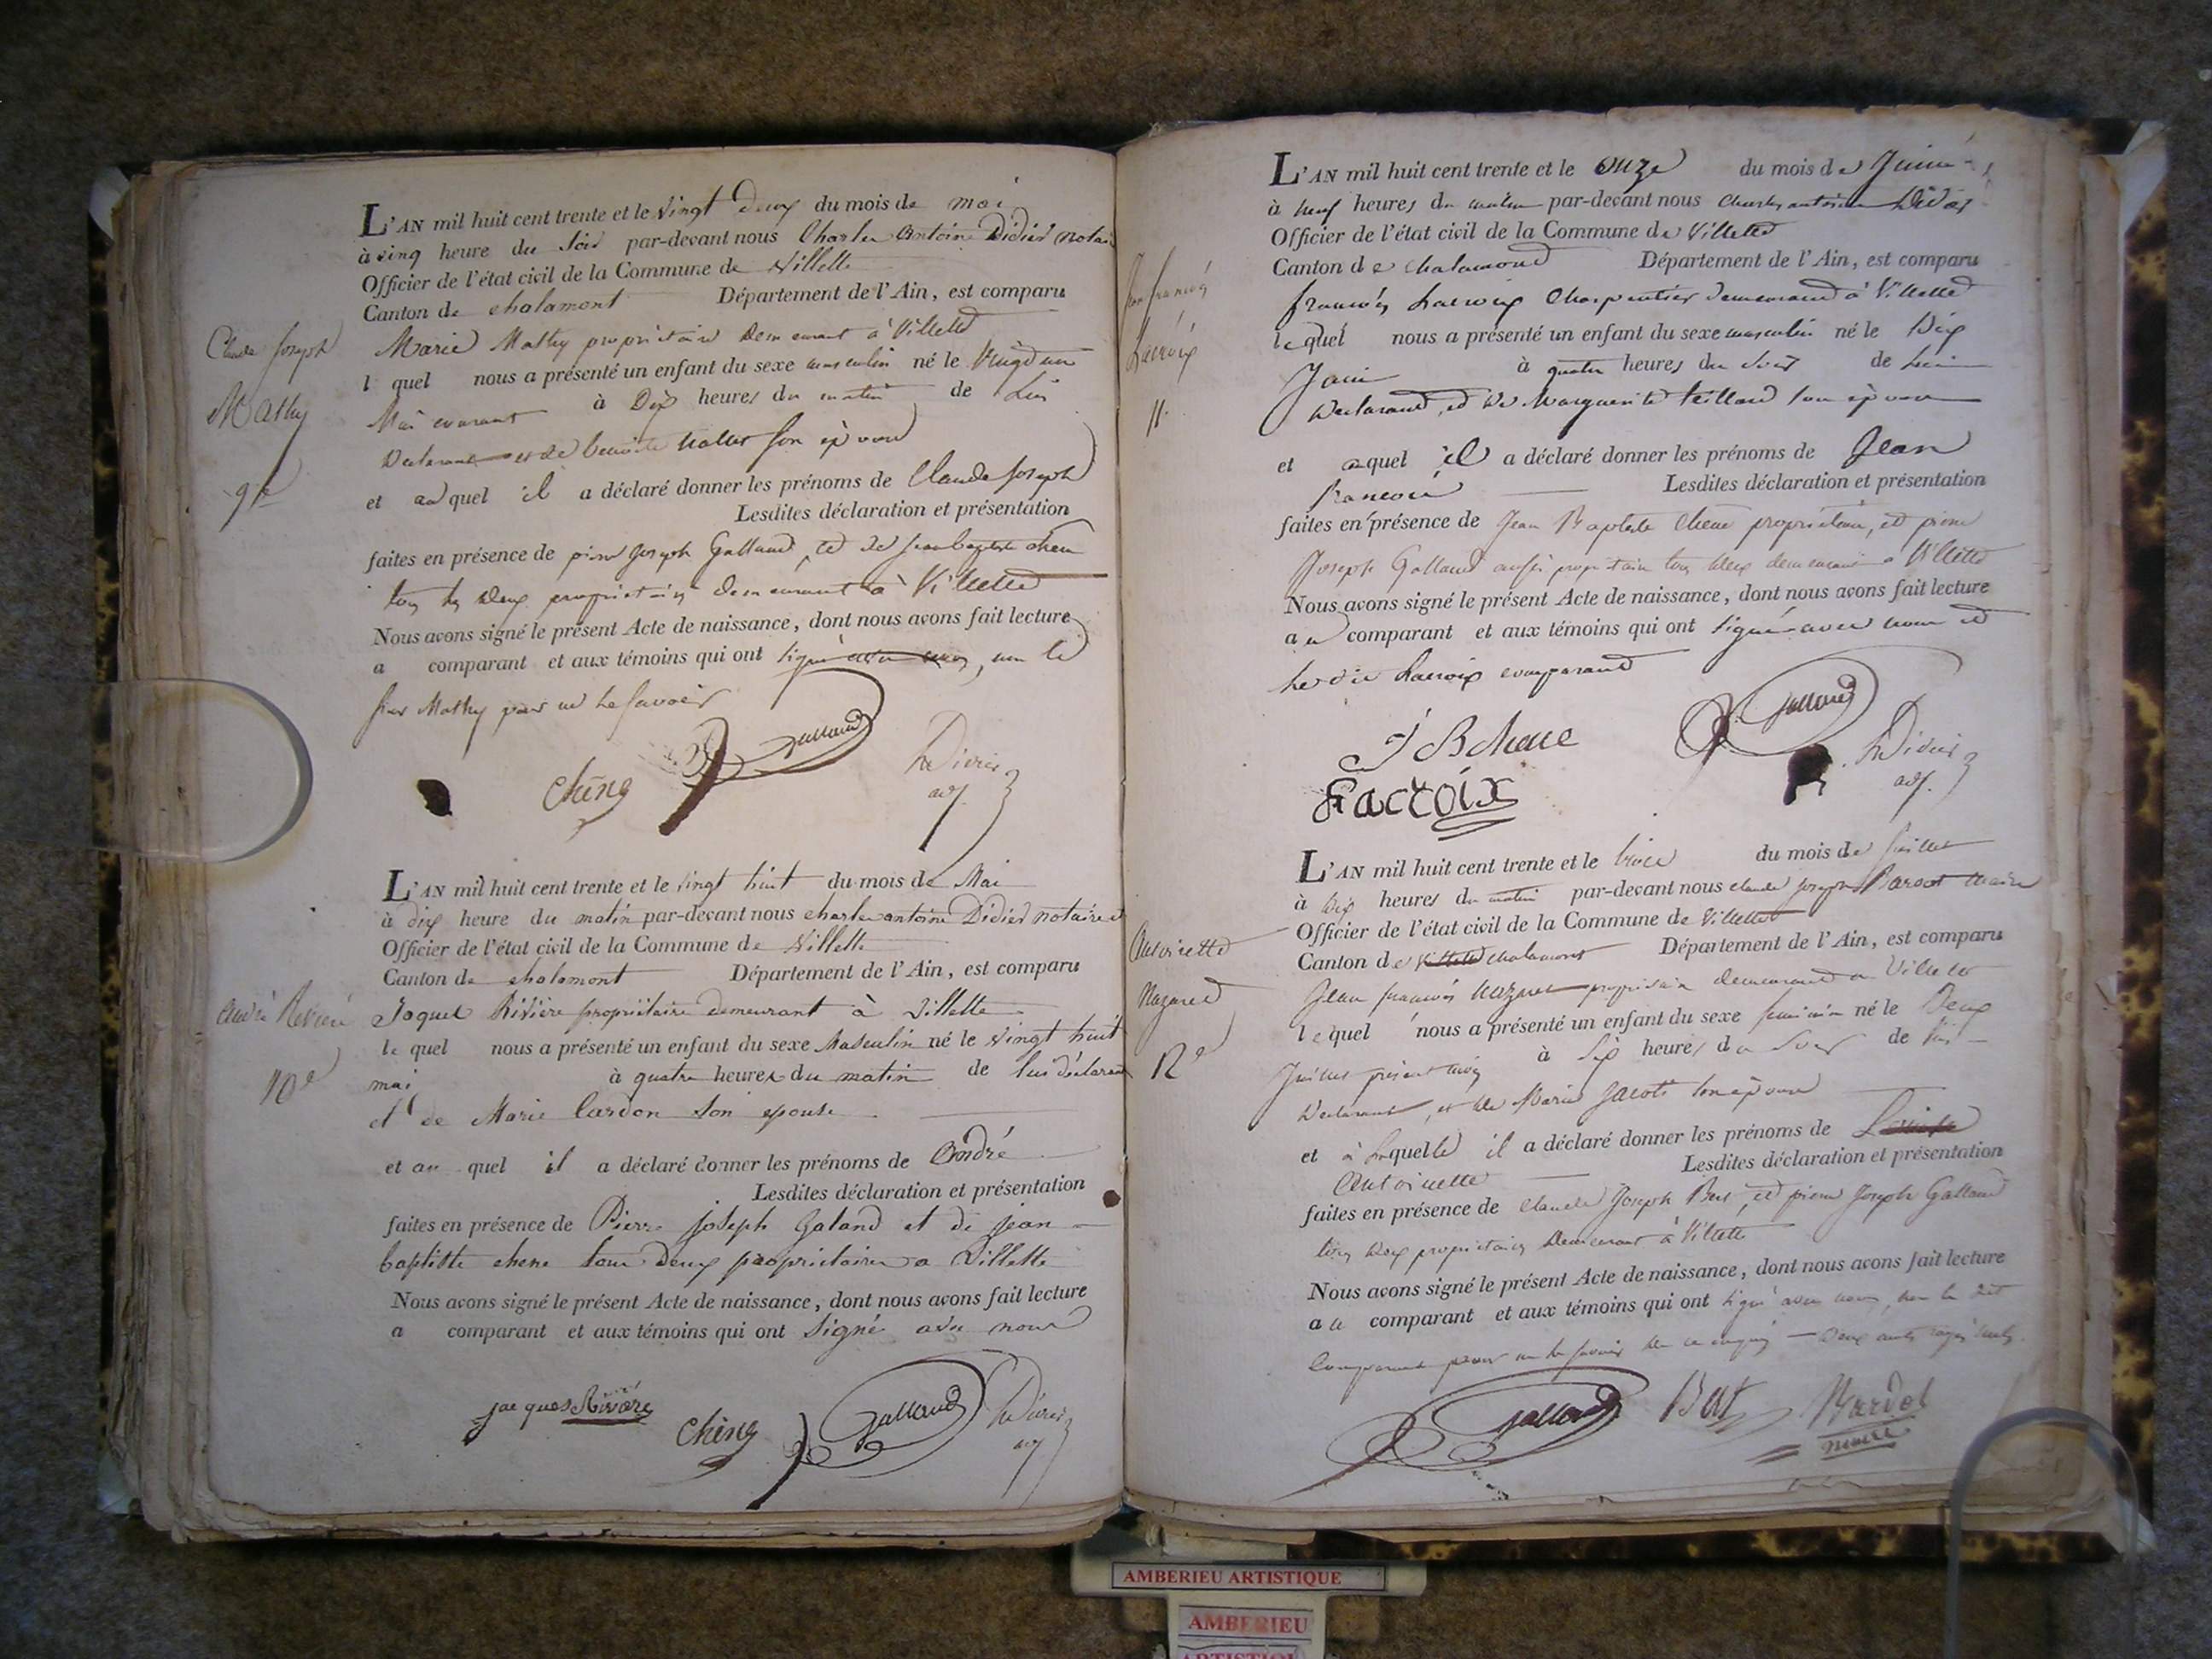 L'AN mil huit cent trente et le vingt deux du mois de mai
à cinq heure du soir par-devant nous Charles Antoine Didier notaire
Officier de l'état civil de la Commune de Villette
Canton de chalamont Département de l'Ain, est comparu
Claude Joseph
Mathy
9e
Marie Mathy propriétaire demeurant à Villette
l quel nous a présenté un enfant du sexe masculin né le Vingt un
Mai courant à Dix heures du matin de Lui
Declarant et de son épouse
et au quel il a déclaré donner les prénoms de Claude Joseph
Lesdites déclaration et présentation
faites en présence de pierre Joseph Galland, et de Jean baptiste chene
tous les deux propriétaires demeurant à Villette
Nous avons signé le présent Acte de naissance, dont nous avons fait lecture
a comparant et aux témoins qui ont signé avec nous, non le
Mathy pour ne le savoir
chêne Galland Didier
adj.
L'AN mil huit cent trente et le vingt huit du mois de Mai
à dix heure du matin par-devant nous charles antoine Didier notaire
Officier de l'état civil de la Commune de Villette
Canton de chalamont Département de l'Ain, est comparu
André Rivière
10e
Jaquet Rivière propriétaire demeurant à Villette
le quel nous a présenté un enfant du sexe Masculin né le vingt huit
mai à quatre heures du matin de lui déclarant
et de Marie Cardon son epouse
et au quel il a déclaré donner les prénoms de André
Lesdites déclaration et présentation
faites en présence de Pierre joseph Galand et de jean
baptiste chene tous deux propriétaires a Villette
Nous avons signé le présent Acte de naissance, dont nous avons fait lecture
a comparant et aux témoins qui ont Signé avec nous
jacques Rivière chêne Galland Didier
adj
L'AN mil huit cent trente et le onze du mois de Juin
à neuf heures du matin par-devant nous Charles antoine Didier
Officier de l'état civil de la Commune de Villette
Canton de chalamont Département de l'Ain, est comparu
Jean françois
Lacroix
11
françois Lacroix Charpentier demeurant à Villette
lequel nous a présenté un enfant du sexe masculin né le Dix
Juin à quatre heures du soir de Lui
Declarant, et de Marguerite son épouse
et aquel il a déclaré donner les prénoms de Jean
François Lesdites déclaration et présentation
faites en présence de Jean Baptiste Chene propriétaire, et pierre
Joseph Galland aussi propriétaire tous deux demeurant a Villette
Nous avons signé le présent Acte de naissance, dont nous avons fait lecture
au comparant et aux témoins qui ont signé avec nous et
le dit Lacroix comparant
J B chene Galland Didier
adj.
Lacroix
L'AN mil huit cent trente et le trois du mois de Juillet
à dix heures du matin par-devant nous claude joseph Bardot maire
Officier de l'état civil de la Commune de Villette
Canton de Villette chalamont Département de l'Ain, est comparu
Antoinette
Nazaret
12e
Jean françois propriétaire demeurant a Villette
lequel nous a présenté un enfant du sexe feminin né le Deux
Juillet présent mois à Six heures du Soir de lui
Declarant, et de Marie son épouse
et à laquelle il a déclaré donner les prénoms de Louise
Antoinette Lesdites déclaration et présentation
faites en présence de claude Joseph Bert, et pierre Joseph Galland
tous deux propriétaires demeurant à Villette
Nous avons signé le présent Acte de naissance, dont nous avons fait lecture
au comparant et aux témoins qui ont signé avec nous, non le dit
Comparant pour ne le savoir de ce enquis — Deux mots rayés nuls
Galland Bert Bardot
maire
AMBERIEU ARTISTIQUE
AMBERIEU
ARTISTIQUE